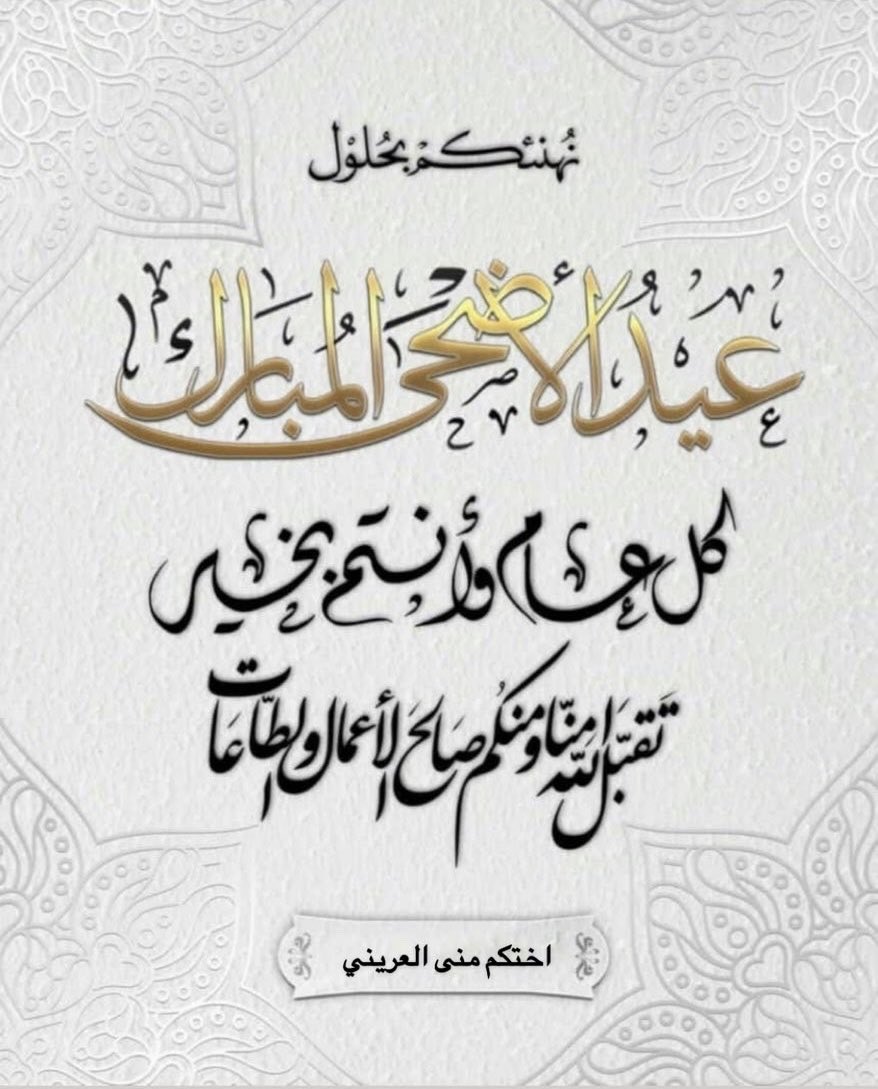 نُهنئكم بحُلوْل
عيدُ الأضحى المُبارك
كل عام وأنتم بخير
تقبّل الله منّا ومنكُم صَالحَ الأعمال والطّاعَات
اختكم منى العريني